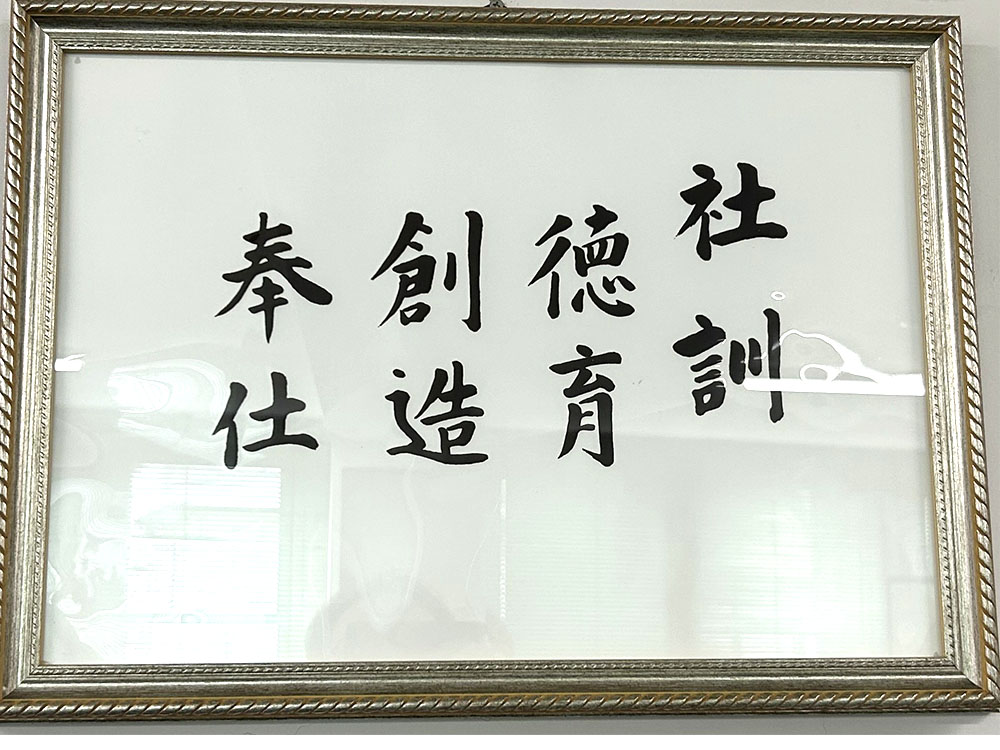 社訓
徳育
創造
奉仕